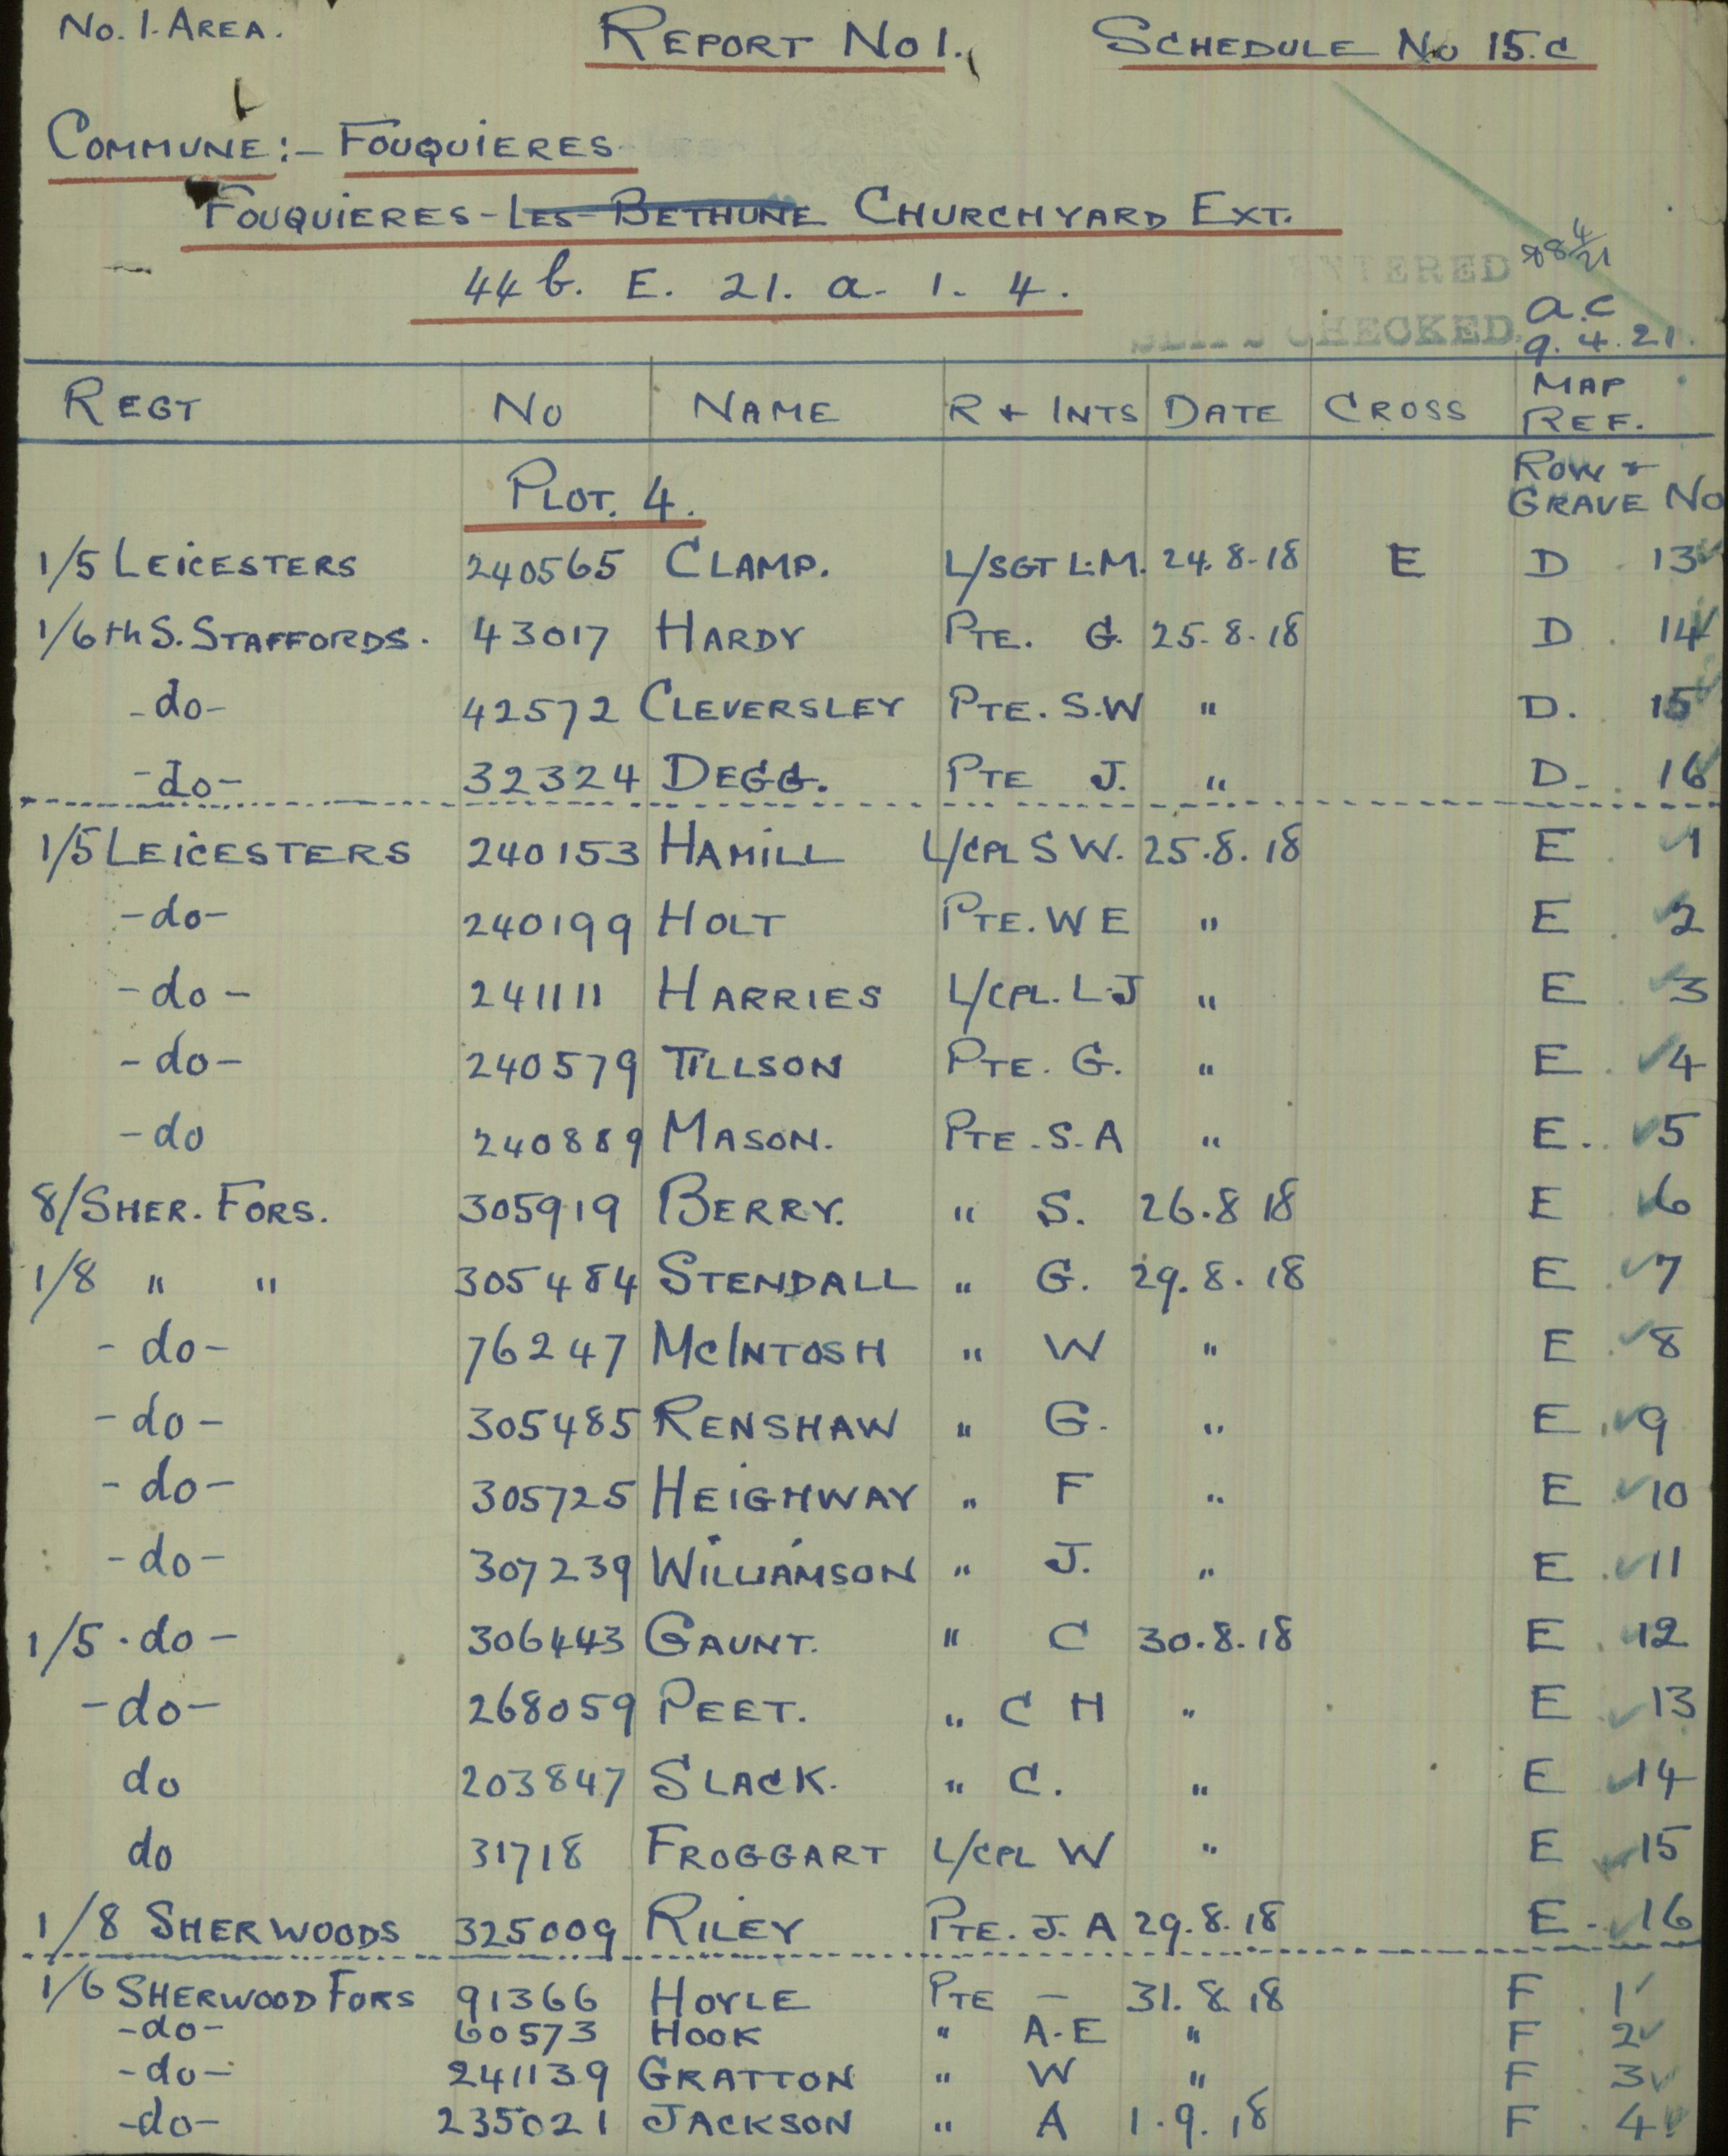 No. 1. AREA. REPORT No 1. SCHEDULE No 15.C
COMMUNE:- FOUQUIERES
FOUQUIERES-LES-BETHUNE CHURCHYARD EXT.
44 b. E. 21. a. 1. 4.
ENTERED 8 4/21
CHECKED. a.c
9.4.21.
REGT No NAME R + INTS DATE CROSS MAP REF.
PLOT. 4. ROW + GRAVE No
1/5 LEICESTERS 240565 CLAMP. L/SGT L.M. 24.8.18 E D 13
1/6th S. STAFFORDS. 43017 HARDY PTE. G. 25.8.18 D 14
-do- 42572 CLEVERSLEY PTE. S.W " D. 15
-do- 32324 DEGG. PTE J. " D 16
1/5 LEICESTERS 240153 HAMILL L/CPL S W. 25.8.18 E 1
-do- 240199 HOLT PTE. W E " E 2
-do- 241111 HARRIES L/CPL. L.J " E 3
-do- 240579 TILLSON PTE. G. " E 4
-do 240889 MASON. PTE. S.A " E. 5
8/SHER. FORS. 305919 BERRY. " S. 26.8 18 E 6
1/8 " " 305484 STENDALL " G. 29.8.18 E 7
-do- 76247 McINTOSH " W " E 8
-do- 305485 RENSHAW " G. " E 9
-do- 305725 HEIGHWAY " F " E 10
-do- 307239 WILLIAMSON " J. " E 11
1/5 -do- 306443 GAUNT. " C 30.8.18 E 12
-do- 268059 PEET. " C H " E 13
do 203847 SLACK. " C. " E 14
do 31718 FROGGART L/CPL W " E 15
1/8 SHERWOODS 325009 RILEY PTE. J. A 29.8.18 E 16
1/6 SHERWOOD FORS 91366 HOYLE PTE - 31.8.18 F 1
-do- 60573 HOOK " A.E " F 2
-do- 241139 GRATTON " W " F 3
-do- 235021 JACKSON " A 1.9.18 F 4